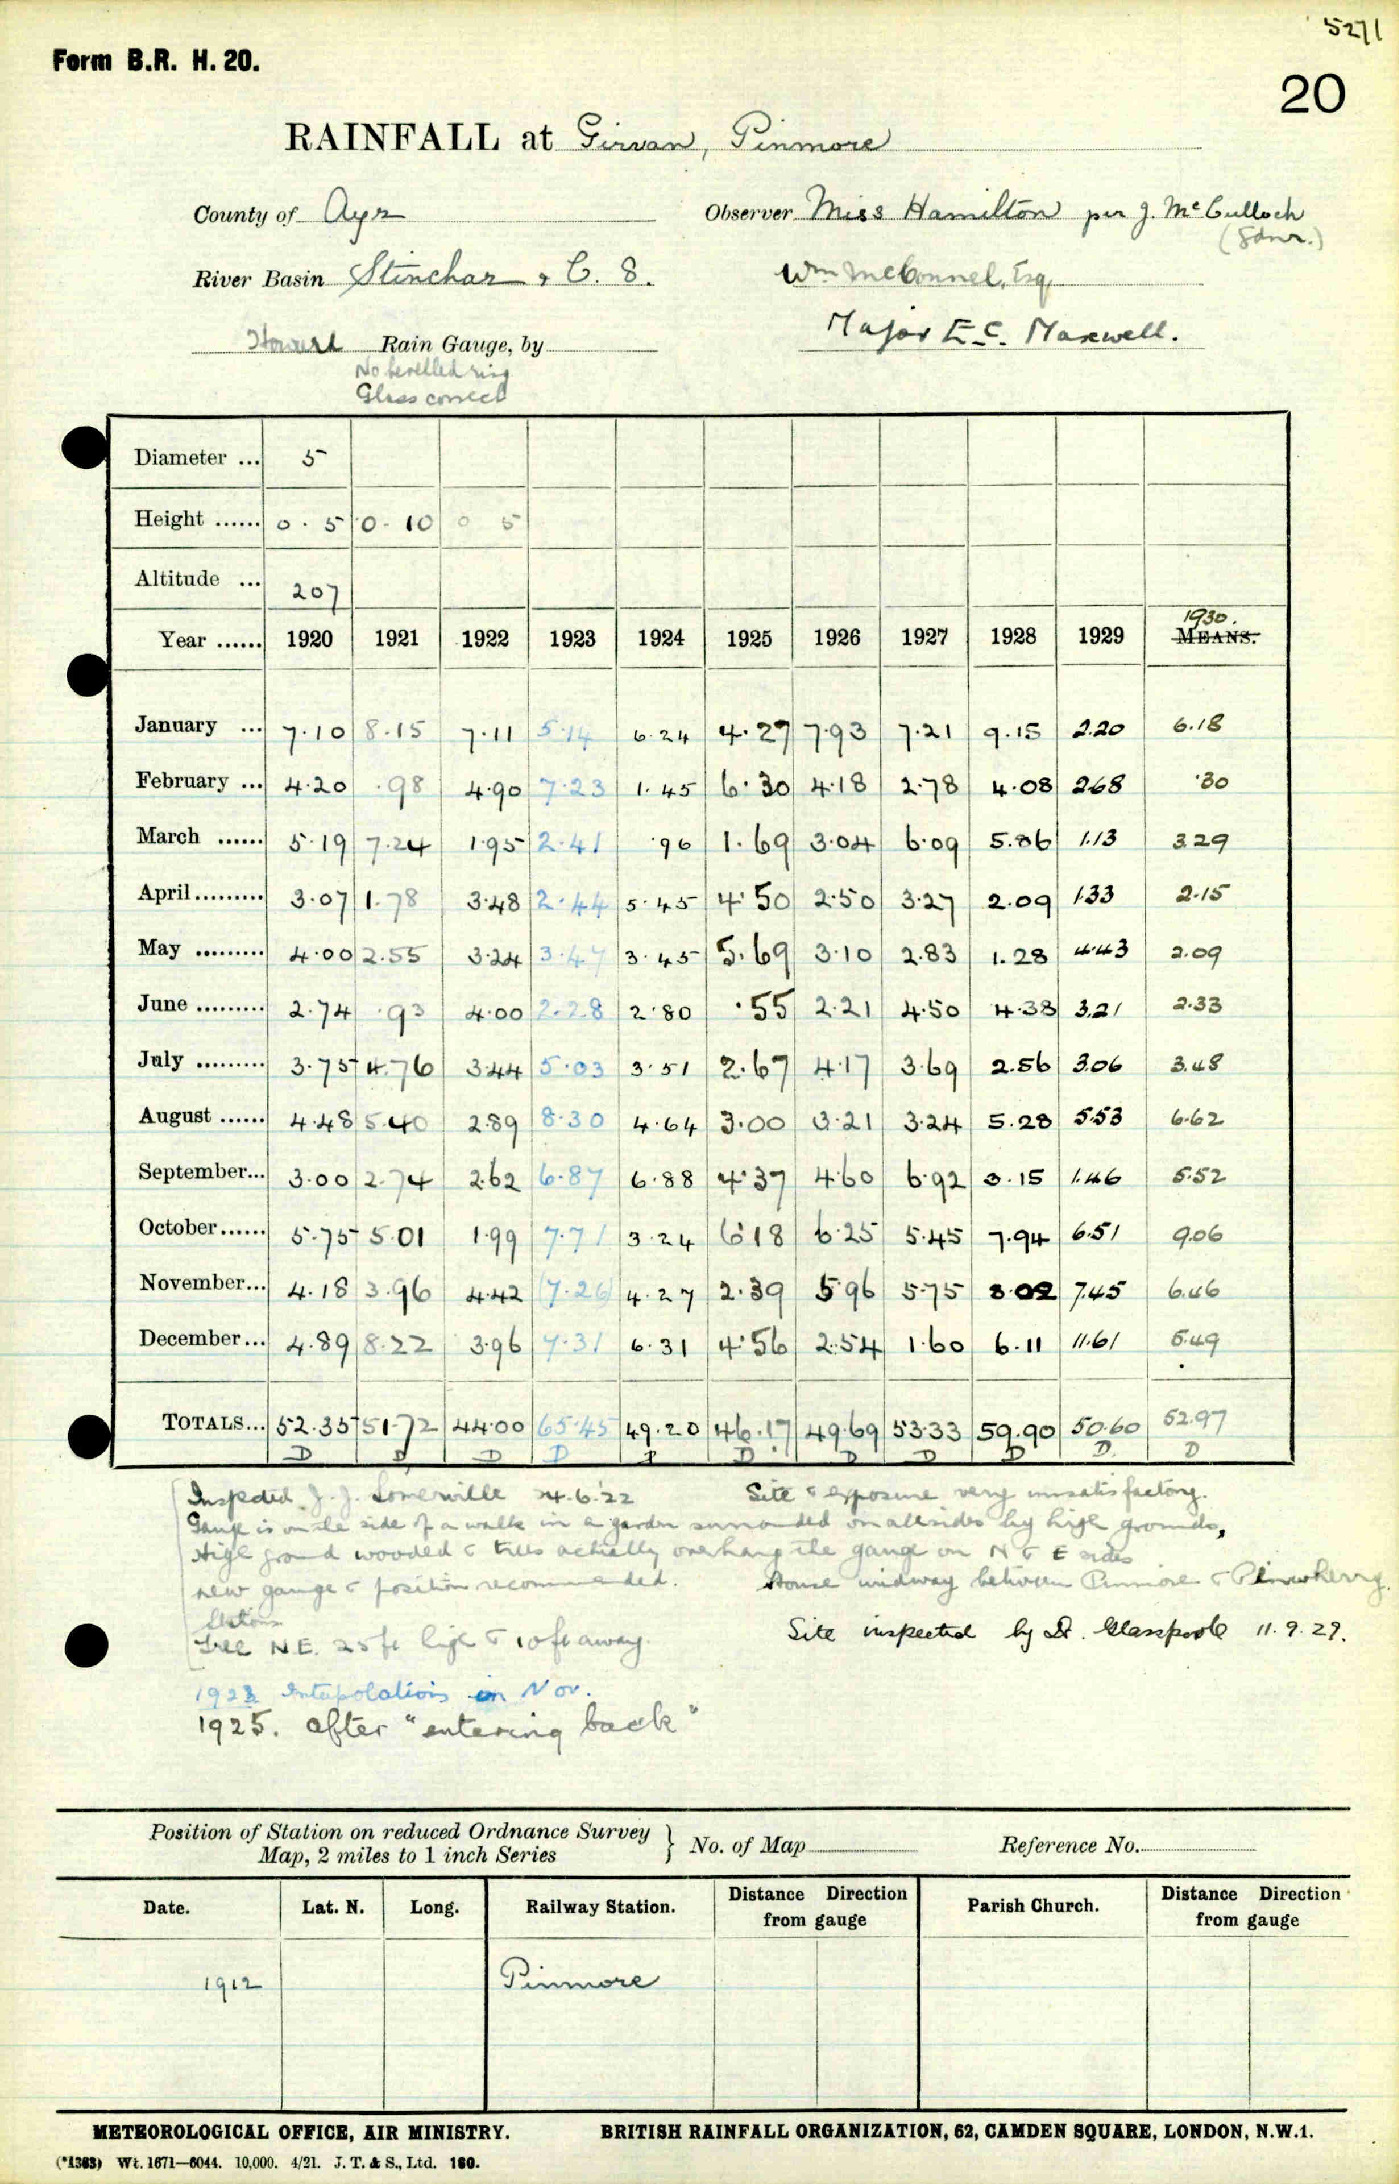 5271
Form B.R. H. 20.
20
RAINFALL at Girvan, Pinmore
County of Ayr
Observer Miss Hamilton per J. McCulloch
(Gdnr.)
River Basin Stinchar & C. 8.
Wm McConnel, Esq.
Howard Rain Gauge, by
Major E.C. Maxwell.
No bevelled ring
Glass correct
Diameter ... 5
Height ...... 0 . 5 0 - 10 0 5
Altitude ... 207
1930.
Year ...... 1920 1921 1922 1923 1924 1925 1926 1927 1928 1929 MEANS.
January ... 7.10 8.15 7.11 5.14 6.24 4.27 7.93 7.21 9.15 2.20 6.18
February ... 4.20 .98 4.90 7.23 1.45 6.30 4.18 2.78 4.08 2.68 .30
March ...... 5.19 7.24 1.95 2.41 .96 1.69 3.04 6.09 5.86 1.13 3.29
April ......... 3.07 1.78 3.48 2.44 5.45 4.50 2.50 3.27 2.09 1.33 2.15
May ......... 4.00 2.55 3.24 3.47 3.45 5.69 3.10 2.83 1.28 4.43 2.09
June ......... 2.74 .93 4.00 2.28 2.80 .55 2.21 4.50 4.38 3.21 2.33
July ......... 3.75 4.76 3.44 5.03 3.51 2.67 4.17 3.69 2.56 3.06 3.48
August ...... 4.48 5.40 2.89 8.30 4.64 3.00 3.21 3.24 5.28 5.53 6.62
September... 3.00 2.74 2.62 6.87 6.88 4.37 4.60 6.92 3.15 1.46 5.52
October ...... 5.75 5.01 1.99 7.71 3.24 6.18 6.25 5.45 7.94 6.51 9.06
November... 4.18 3.96 4.42 (7.26) 4.27 2.39 5.96 5.75 8.02 7.45 6.46
December... 4.89 8.22 3.96 7.31 6.31 4.56 2.54 1.60 6.11 11.61 5.49
TOTALS... 52.35 51.72 44.00 65.45 49.20 46.17 49.69 53.33 59.90 50.60 52.97
D D D D D D D D D D D
Inspected J. J. Somerville 24.6.'22 Site & exposure very unsatisfactory.
Gauge is on the side of a walk in a garden surrounded on all sides by high grounds,
High ground wooded & trees actually overhang the gauge on N & E sides
new gauge & position recommended. House midway between Pinmore & Pinwherry
Stations
Tree N.E. 25 ft high & 10 ft away.
Site inspected by Dr. Glasspoole 11.9.29.
1923 Interpolations in Nov.
1925. after "entering back"
Position of Station on reduced Ordnance Survey
Map, 2 miles to 1 inch Series } No. of Map Reference No.
Date. Lat. N. Long. Railway Station. Distance Direction from gauge Parish Church. Distance Direction from gauge
1912 Pinmore
METEOROLOGICAL OFFICE, AIR MINISTRY. BRITISH RAINFALL ORGANIZATION, 62, CAMDEN SQUARE, LONDON, N.W.1.
(*1363) Wt. 1671—6044. 10,000. 4/21. J. T. & S., Ltd. 160.